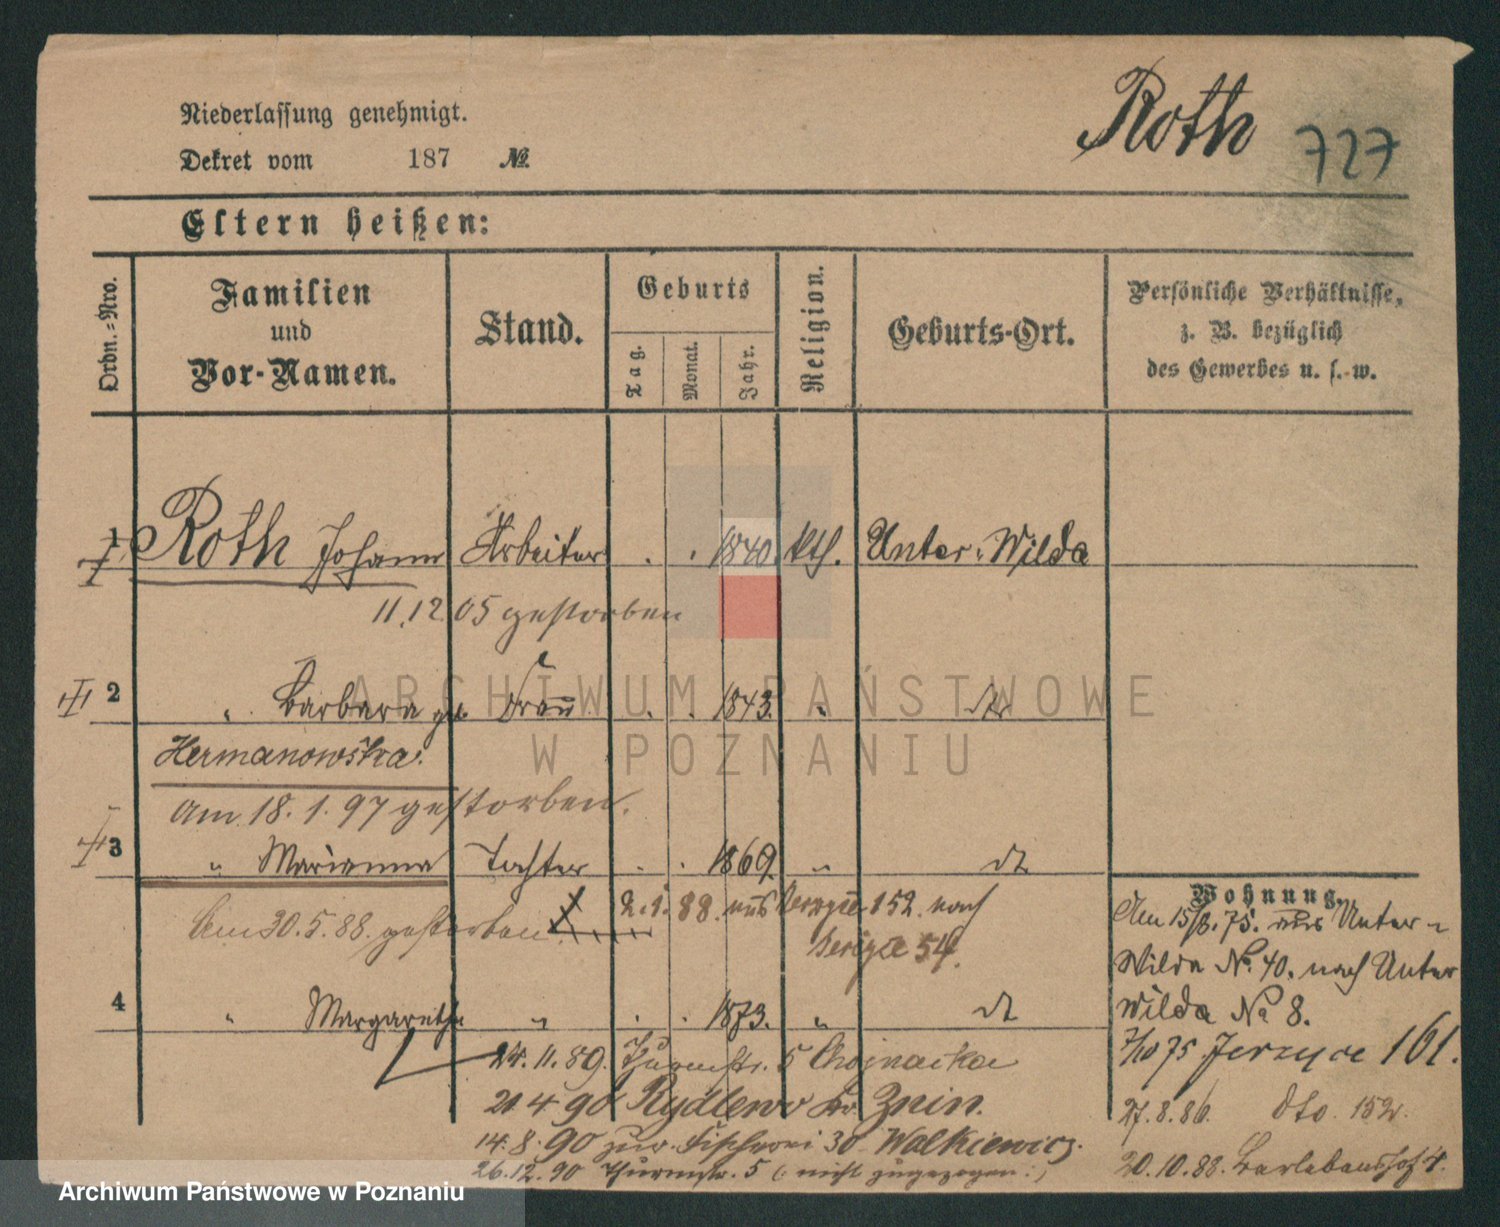 Roth 727
Niederlassung genehmigt.
Dekret vom 187 №
Eltern heißen:
Ordn.=Nro.
Familien
und
Vor-Namen.
Stand.
Geburts
Tag.
Monat.
Jahr.
Religion.
Geburts-Ort.
Persönliche Verhältnisse,
z. B. bezüglich
des Gewerbes u. s. w.
1 Roth Johann Arbeiter . . 1840. kth. Unter-Wilda
11.12.05 gestorben
2 " Barbara geb. Frau . . 1843. " dto
Hermanowska.
Am 18.1.97 gestorben.
3 " Marianna Tochter . . 1869. " dto
Am 30.5.88. gestorben
2.1.88. aus Jerzyce 152. nach
Jerzyce 54.
4 " Margarethe " . . 1873. " dto
24.11.89. Thurmstr. 5 Chojnacka
21.4.90 Rydlewo Kr. Znin.
14.8.90 zur. Fischerei 30 Walkiewicz.
26.12.90 Thurmstr. 5 (: nicht zugezogen :)
Wohnung.
Am 75. aus Unter-
Wilda No. 40. nach Unter
Wilda No 8.
7/10 75 Jerzyce 161.
27.8.86. dto. 152.
20.10.88. Bartlebenshof 4.
ARCHIWUM PAŃSTWOWE
W POZNANIU
Archiwum Państwowe w Poznaniu